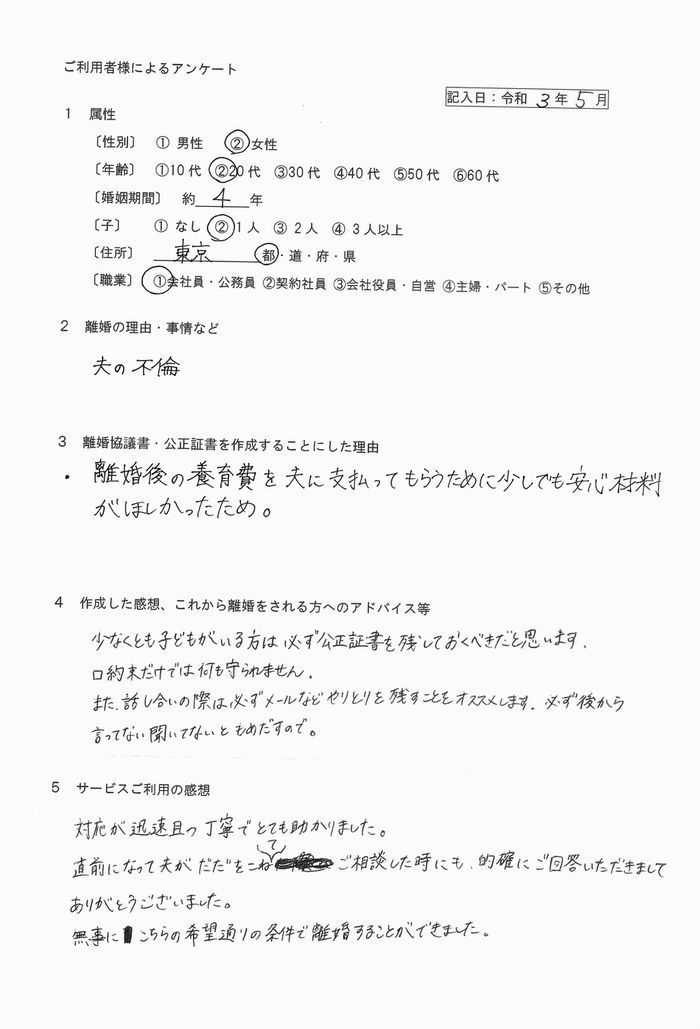 ご利用者様によるアンケート
記入日：令和 3年 5月
1 属性
〔性別〕 ① 男性 ② 女性
〔年齢〕 ①10代 ②20代 ③30代 ④40代 ⑤50代 ⑥60代
〔婚姻期間〕 約 4 年
〔子〕 ① なし ② 1人 ③ 2人 ④ 3人以上
〔住所〕 東京 都・道・府・県
〔職業〕 ①会社員・公務員 ②契約社員 ③会社役員・自営 ④主婦・パート ⑤その他
2 離婚の理由・事情など
夫の不倫
3 離婚協議書・公正証書を作成することにした理由
・ 離婚後の養育費を夫に支払ってもらうために少しでも安心材料
がほしかったため。
4 作成した感想、これから離婚をされる方へのアドバイス等
少なくとも子どもがいる方は必ず公正証書を残しておくべきだと思います。
口約束だけでは何も守られません。
また、話し合いの際は必ずメールなどやりとりを残すことをオススメします。必ず後から
言ってない聞いてないともめだすので。
5 サービスご利用の感想
対応が迅速且つ丁寧でとても助かりました。
直前になって夫がだだをこねてご相談した時にも、的確にご回答いただきまして
ありがとうございました。
無事にこちらの希望通りの条件で離婚することができました。